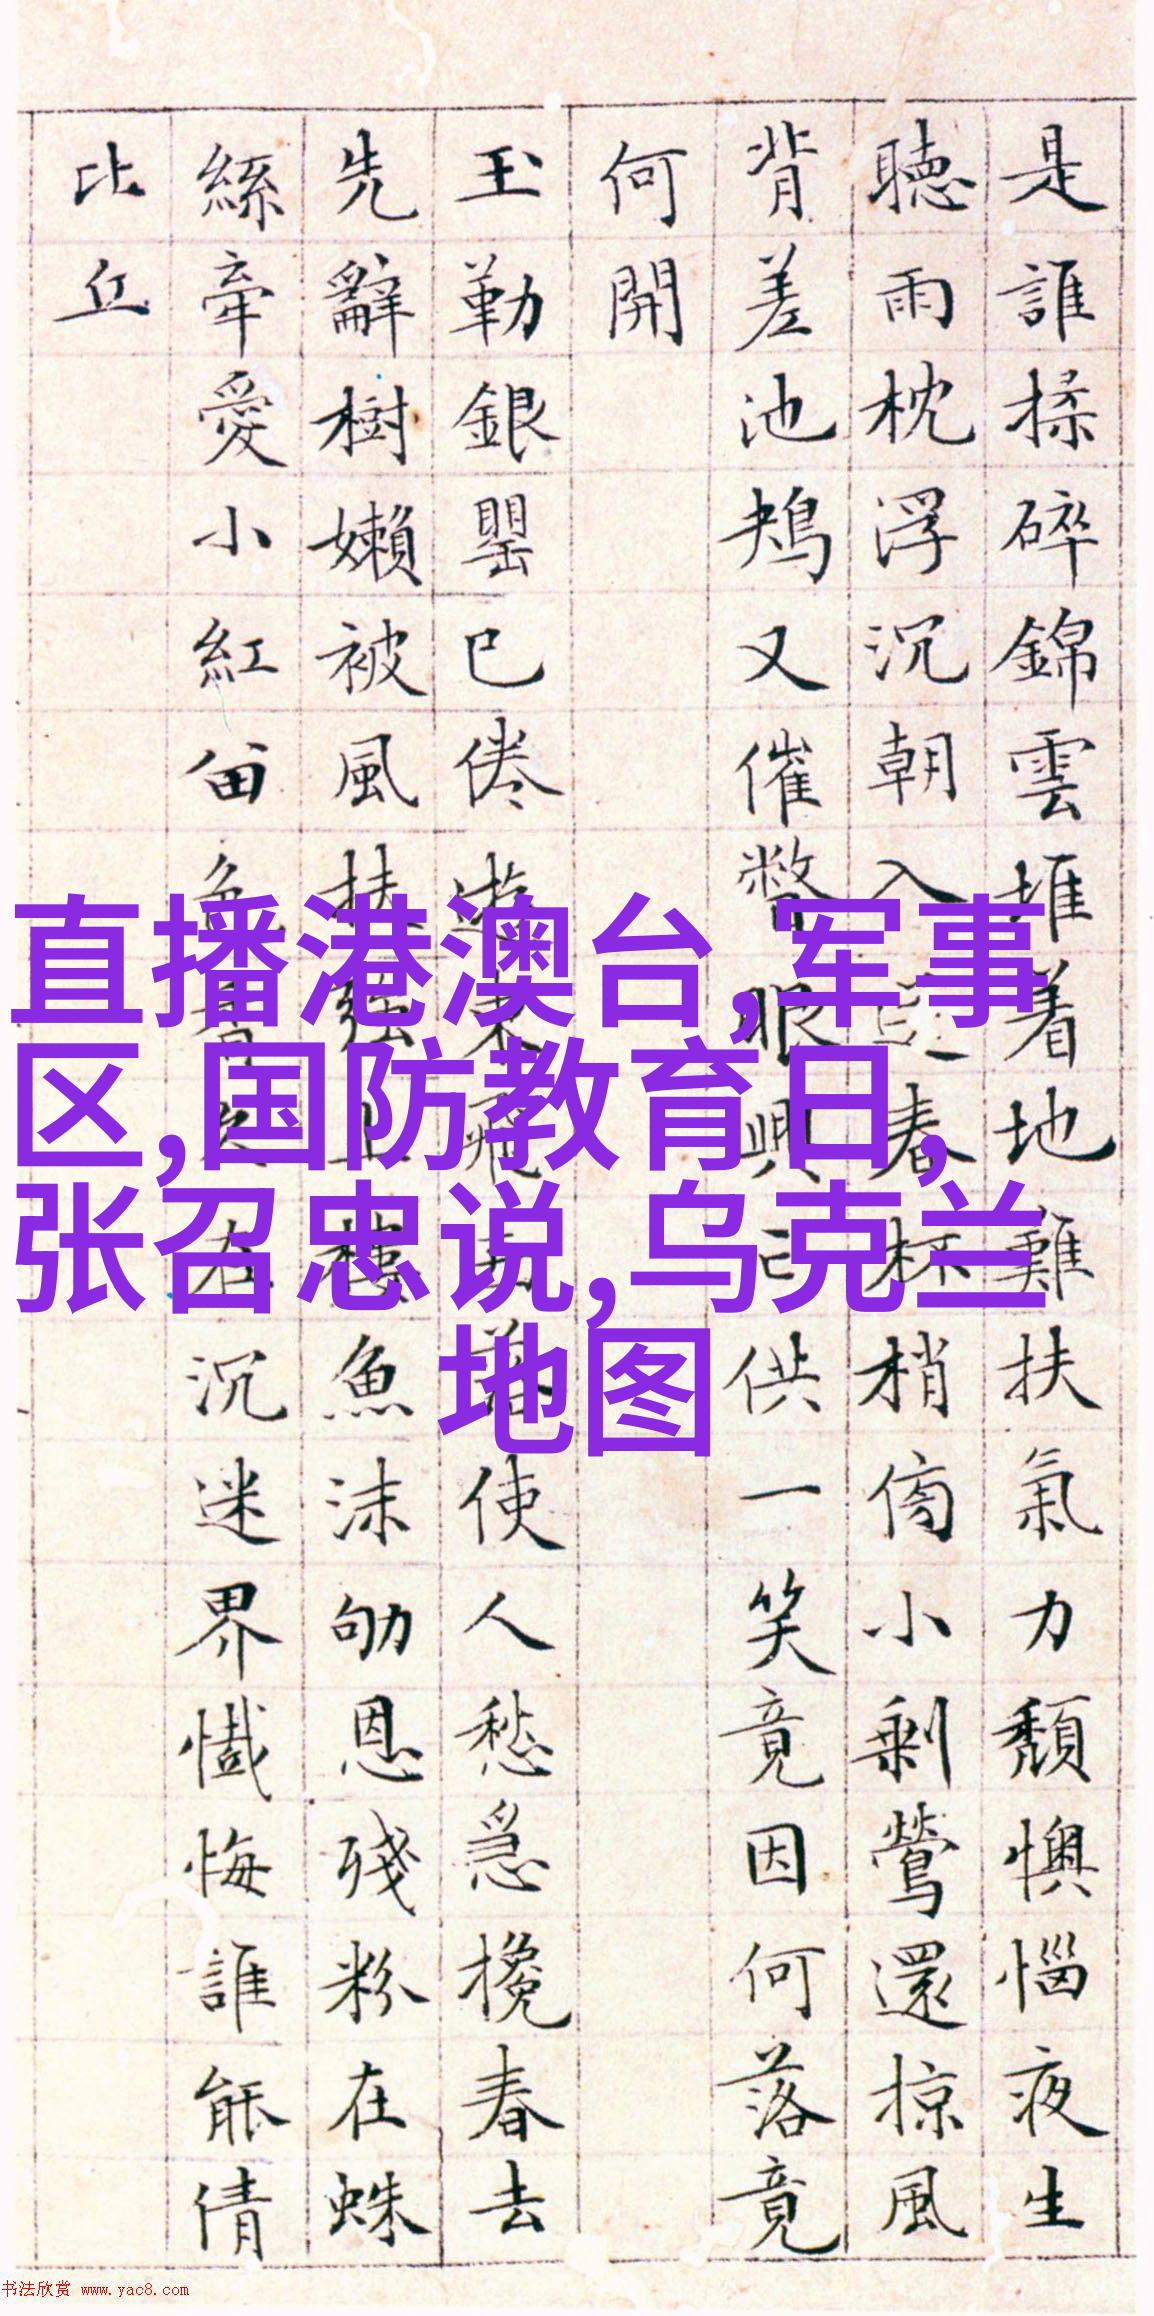 是誰揉碎錦雲堆着地難扶氣力頹懊惱夜生
聽雨枕浮沉朝入春杯梢傍小剩鶯還掠風
背差池鴂又催瞥眼興亡供一笑竟因何落竟
何開
玉勒銀罌已倦遊東飛西落使人愁急攙春去
先辭樹嬾被風扶強上樓魚沫劬恩殘粉在蛛
絲牽愛小紅留色香久在沉迷界懺悔誰能倩
比丘
直播港澳台,军事
区,国防教育日,
张召忠说,乌克兰
地图
书法欣赏 www.yac8.com